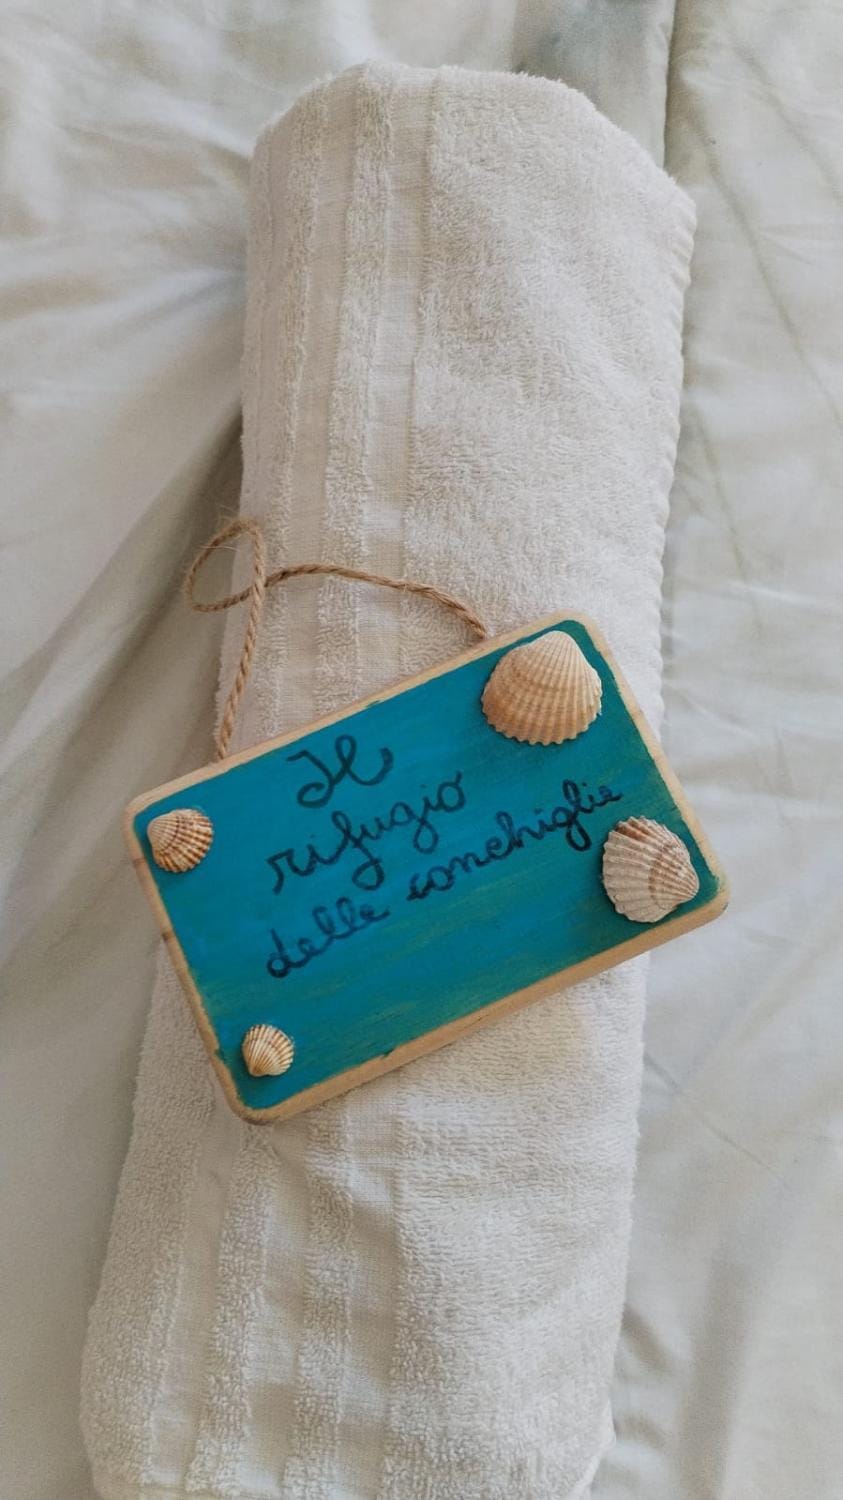 Il
rifugio
delle conchiglie